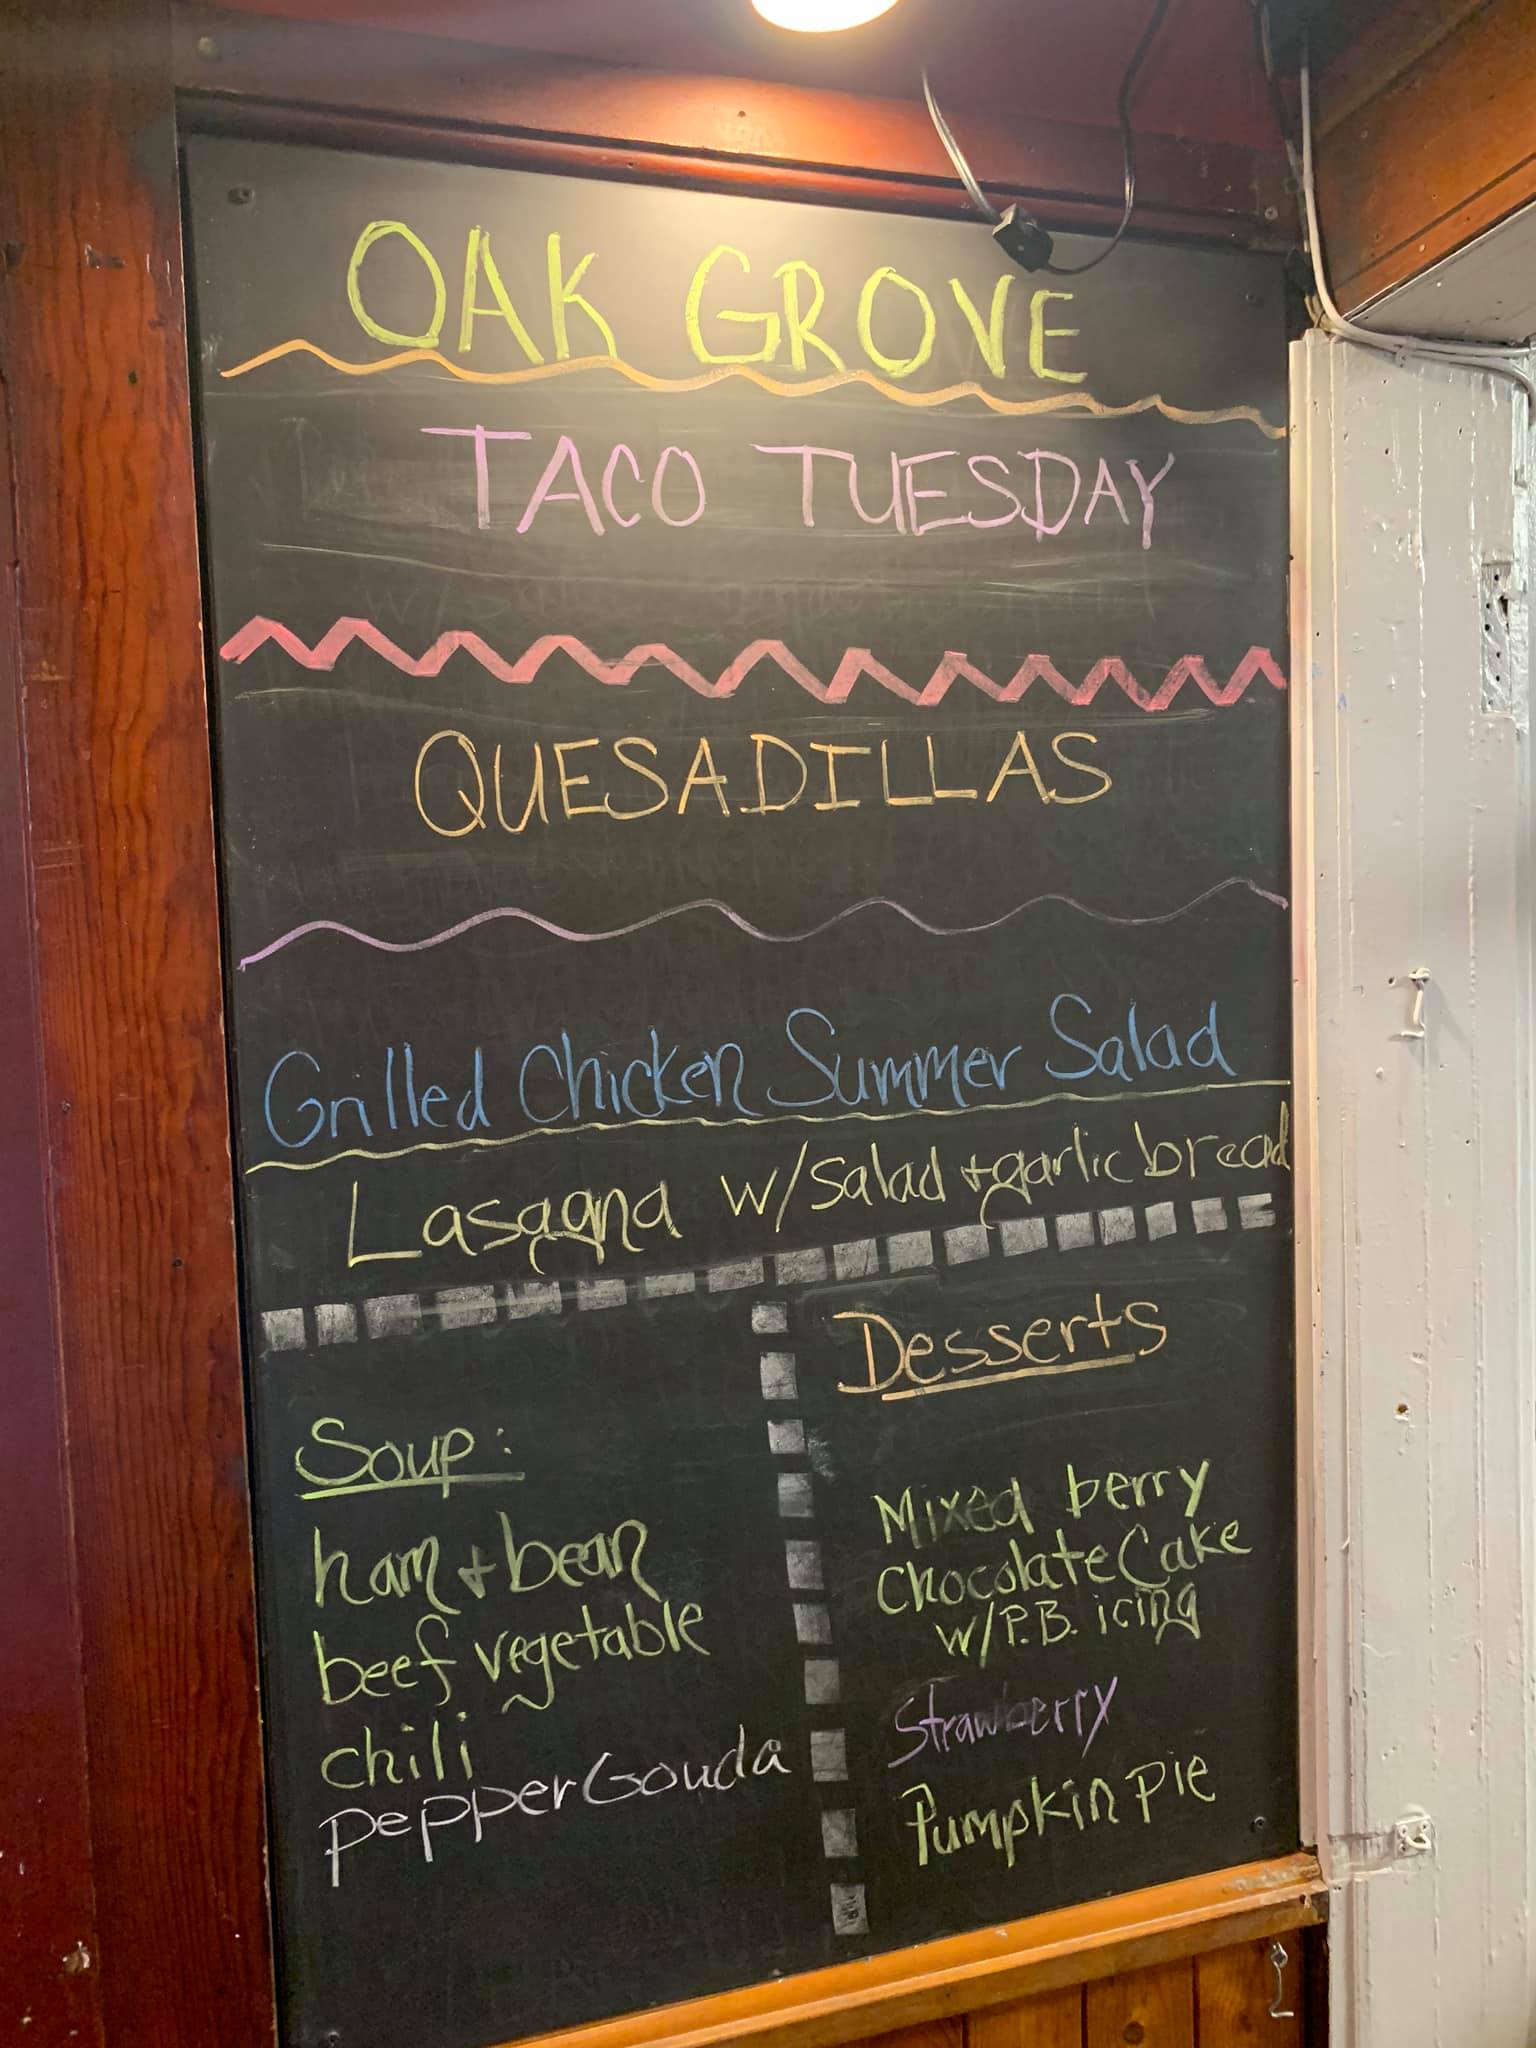 OAK GROVE
TACO TUESDAY
QUESADILLAS
Grilled Chicken Summer Salad
Lasagna w/salad + garlic bread
Desserts
Soup:
ham + bean
beef vegetable
chili
pepper Gouda
Mixed berry
Chocolate Cake
w/P.B. icing
Strawberry
Pumpkin Pie